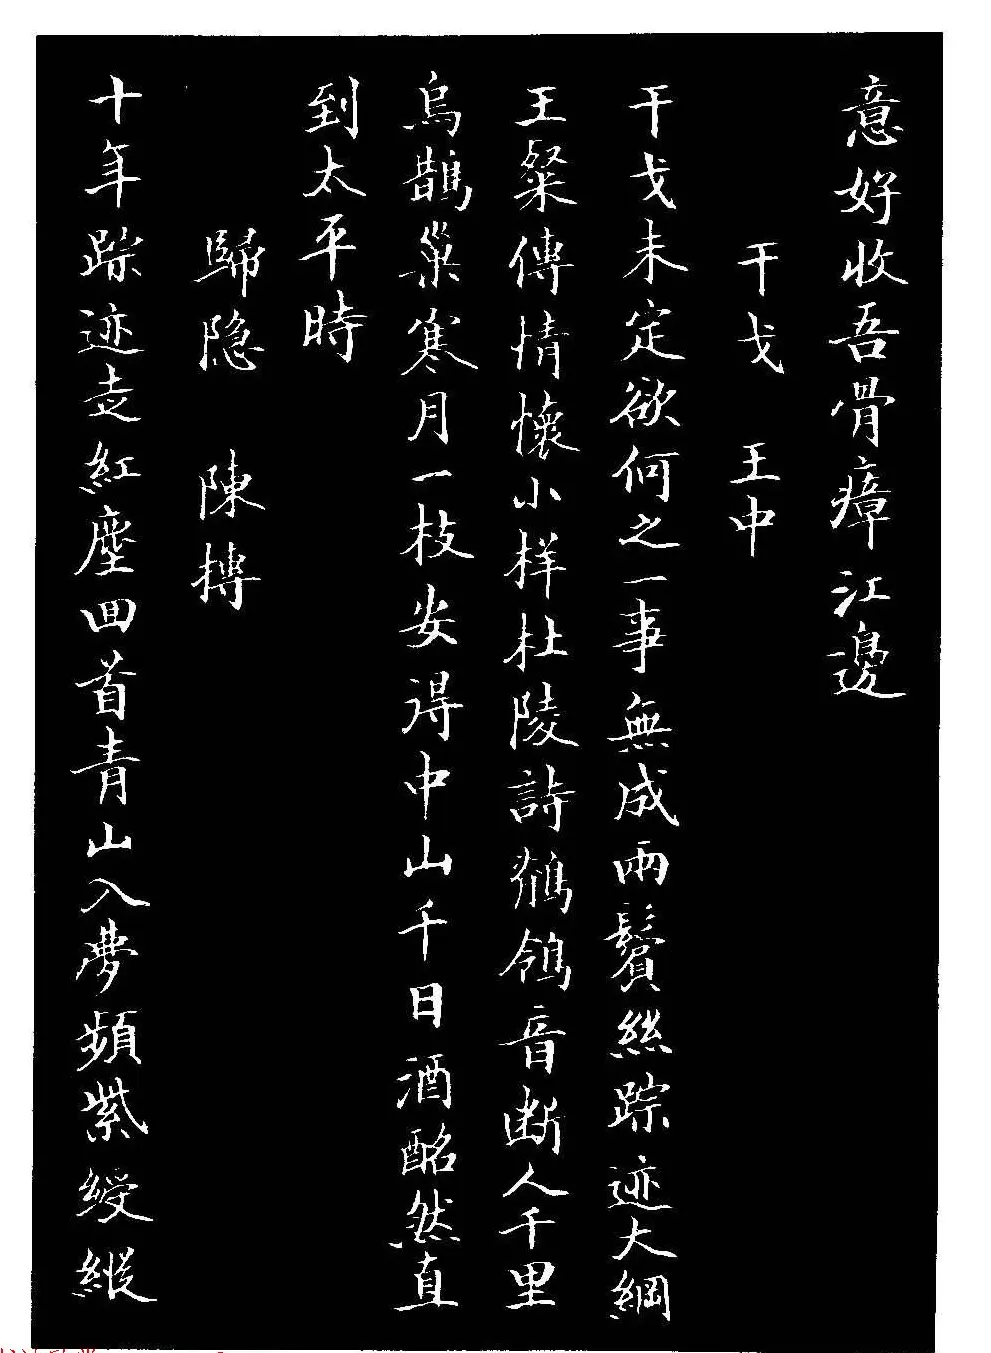 意好收吾骨瘴江邊
干戈 王中
干戈未定欲何之一事無成兩鬢絲踪迹大綱
王粲傳情懷小样杜陵詩鹡鸰音断人千里
烏鵲巢寒月一枝安得中山千日酒酩然直
到太平時
歸隐 陳摶
十年踪迹走紅塵回首青山入夢頻紫綬縱